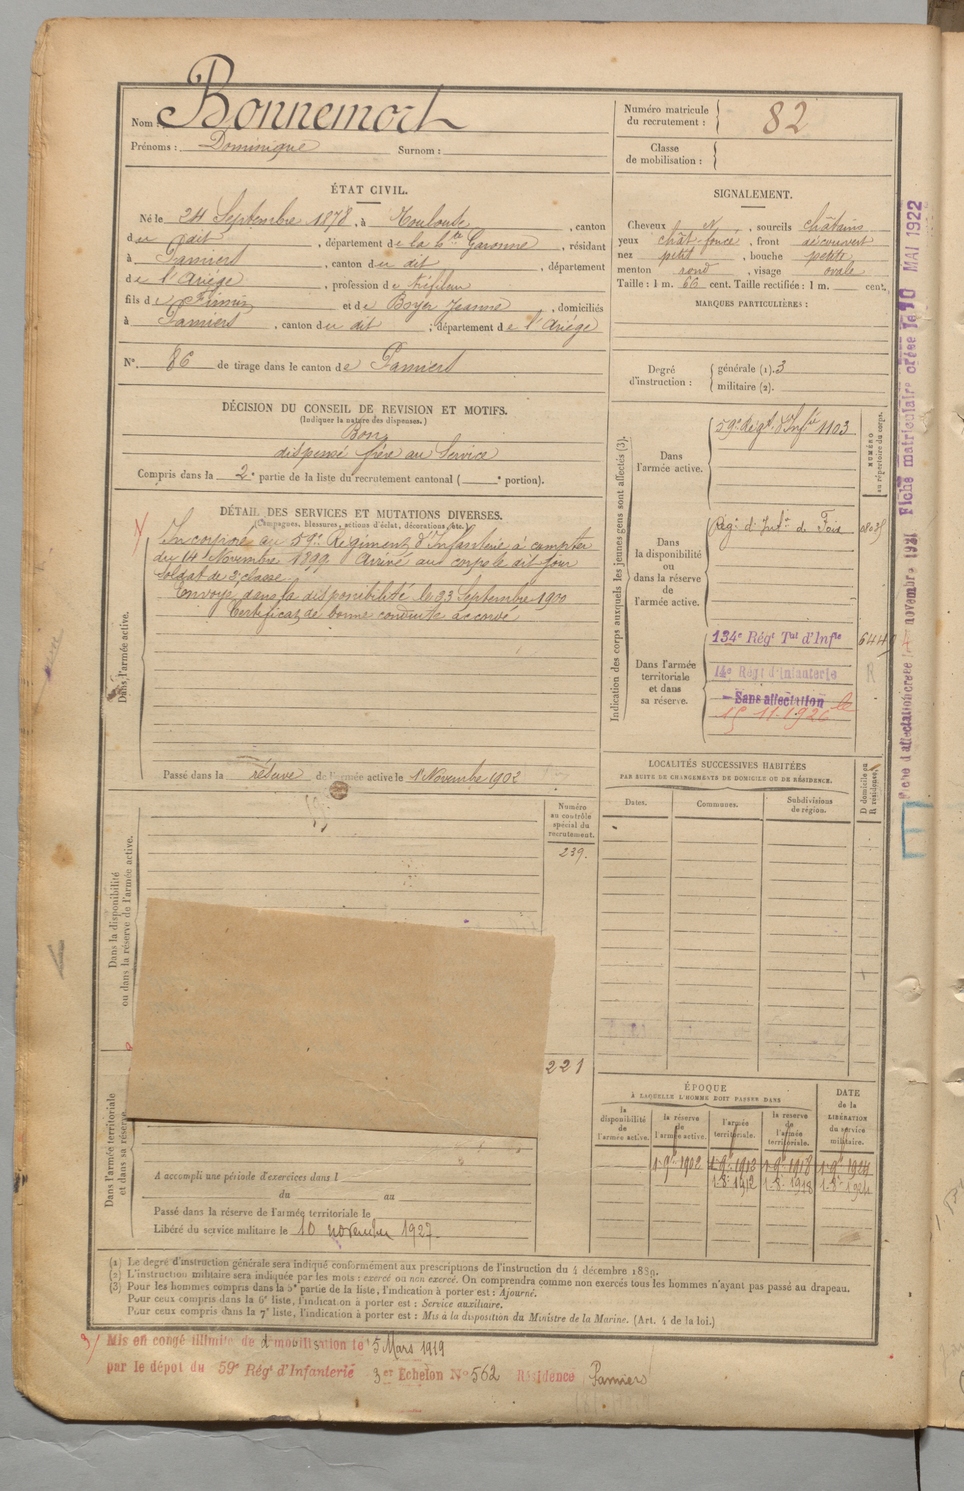 Nom : Bonnemort
Prénoms : Dominique Surnom :
Numéro matricule du recrutement : 82
Classe de mobilisation :
ÉTAT CIVIL.
Né le 24 Septembre 1878, à Toulouse, canton
du dit, département de la Hte Garonne, résidant
à Pamiers, canton du dit, département
de l'Ariège, profession de tréfileur
fils de Firmin et de Boyer Jeanne, domiciliés
à Pamiers, canton du dit, département de l'Ariège
No. 86 de tirage dans le canton de Pamiers
SIGNALEMENT.
Cheveux N, sourcils châtains
yeux chât. foncé, front découvert
nez petit, bouche petite
menton rond, visage ovale
Taille : 1 m. 66 cent. Taille rectifiée : 1 m. cent.
MARQUES PARTICULIÈRES :
Degré d'instruction : générale (1). 3
militaire (2).
DÉCISION DU CONSEIL DE REVISION ET MOTIFS.
(Indiquer la nature des dispenses.)
Bon
dispensé frère au Service
Compris dans la 2e partie de la liste du recrutement cantonal ( e portion).
DÉTAIL DES SERVICES ET MUTATIONS DIVERSES.
(Campagnes, blessures, actions d'éclat, décorations, etc.)
Dans l'armée active.
Incorporé au 59e Régiment d'Infanterie à compter
du 14 Novembre 1899. Arrivé au corps le dit jour
soldat de 2e classe.
Envoyé dans la disponibilité le 23 Septembre 1900
Certificat de bonne conduite accordé
Passé dans la réserve de l'armée active le 1er Novembre 1902
Indication des corps auxquels les jeunes gens sont affectés (3).
NUMÉRO au répertoire du corps.
Dans l'armée active.
59e Régt d'Infie 1103
Dans la disponibilité ou dans la réserve de l'armée active.
Régt d'Infie de Foix
Dans l'armée territoriale et dans sa réserve.
134e Régt Tal d'Infie 644
14e Régt d'infanterie R
Sans affectation
15.11.1926
LOCALITÉS SUCCESSIVES HABITÉES
PAR SUITE DE CHANGEMENTS DE DOMICILE OU DE RÉSIDENCE.
Dates. Communes. Subdivisions de région. D domicile ou R résidence.
Numéro au contrôle spécial du recrutement.
239.
Dans la disponibilité ou dans la réserve de l'armée active.
221
Dans l'armée territoriale et dans sa réserve.
A accompli une période d'exercices dans l
du au
Passé dans la réserve de l'armée territoriale le
Libéré du service militaire le 10 novembre 1927.
ÉPOQUE
À LAQUELLE L'HOMME DOIT PASSER DANS
la disponibilité de l'armée active.
la réserve de l'armée active.
l'armée territoriale.
la réserve de l'armée territoriale.
DATE de la LIBÉRATION du service militaire.
1-9e 1902 1-9e 1912 1-9e 1918 1-9e 1924
1-8e 1912 1-8e 1918 1-8e 1924
(1) Le degré d'instruction générale sera indiqué conformément aux prescriptions de l'instruction du 4 décembre 1889.
(2) L'instruction militaire sera indiquée par les mots : exercé ou non exercé. On comprendra comme non exercés tous les hommes n'ayant pas passé au drapeau.
(3) Pour les hommes compris dans la 5e partie de la liste, l'indication à porter est : Ajourné.
Pour ceux compris dans la 6e liste, l'indication à porter est : Service auxiliaire.
Pour ceux compris dans la 7e liste, l'indication à porter est : Mis à la disposition du Ministre de la Marine. (Art. 4 de la loi.)
3/ Mis en congé illimité de démobilisation le 5 Mars 1919
par le dépôt du 59e Régt d'Infanterie 3er Echelon No 562 Résidence Pamiers
Fiche matriculaire créée le 10 MAI 1922